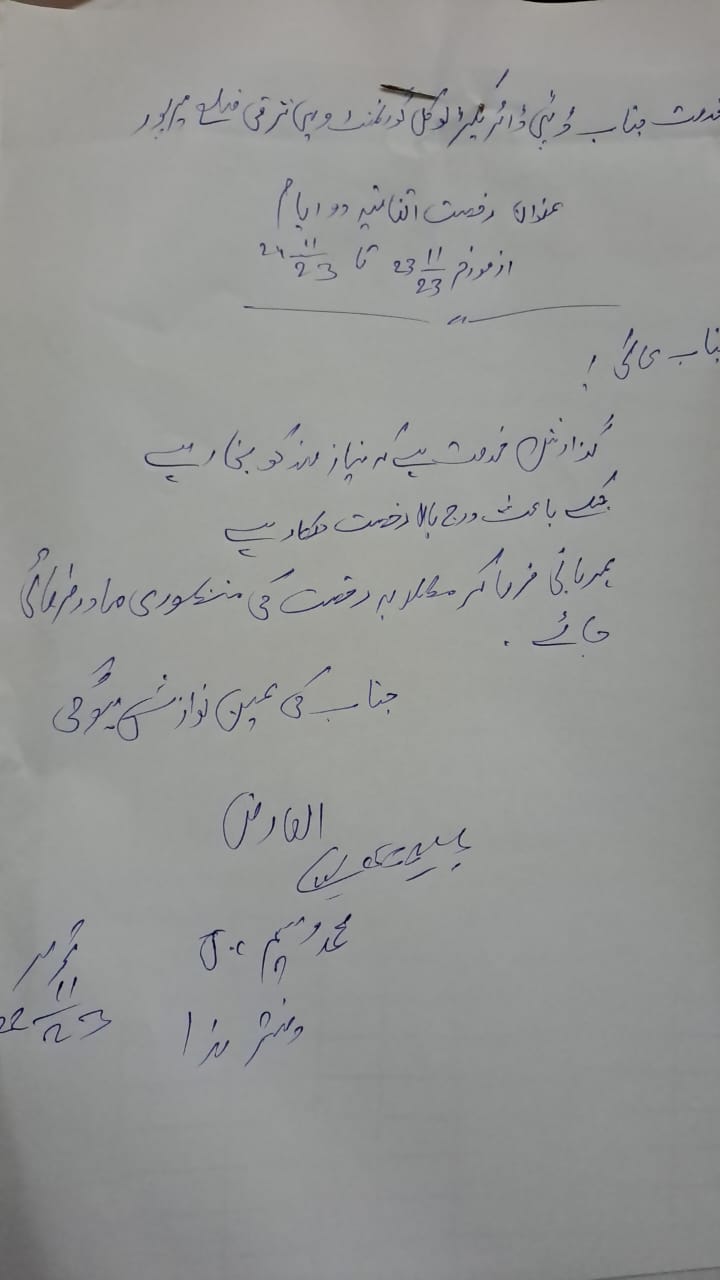 خدمت جناب ڈپٹی ڈائریکٹر لوکل گورنمنٹ و دیہی ترقی ضلع میرپور
عنوان رخصت اتفاقیہ دو ایام
از مورخہ 23 11/23 تا 24 11/23
جناب عالی !
گذارش خدمت ہے کہ نیاز مند کو بخار ہے
جسکے باعث درج بالا رخصت درکار ہے
مہربانی فرما کر مطلوبہ رخصت کی منظوری صادر فرمائی
جائے .
جناب کی عین نوازش ہو گی
العارض
محمد وسیم J.C
دفتر ہذا
22 11/23